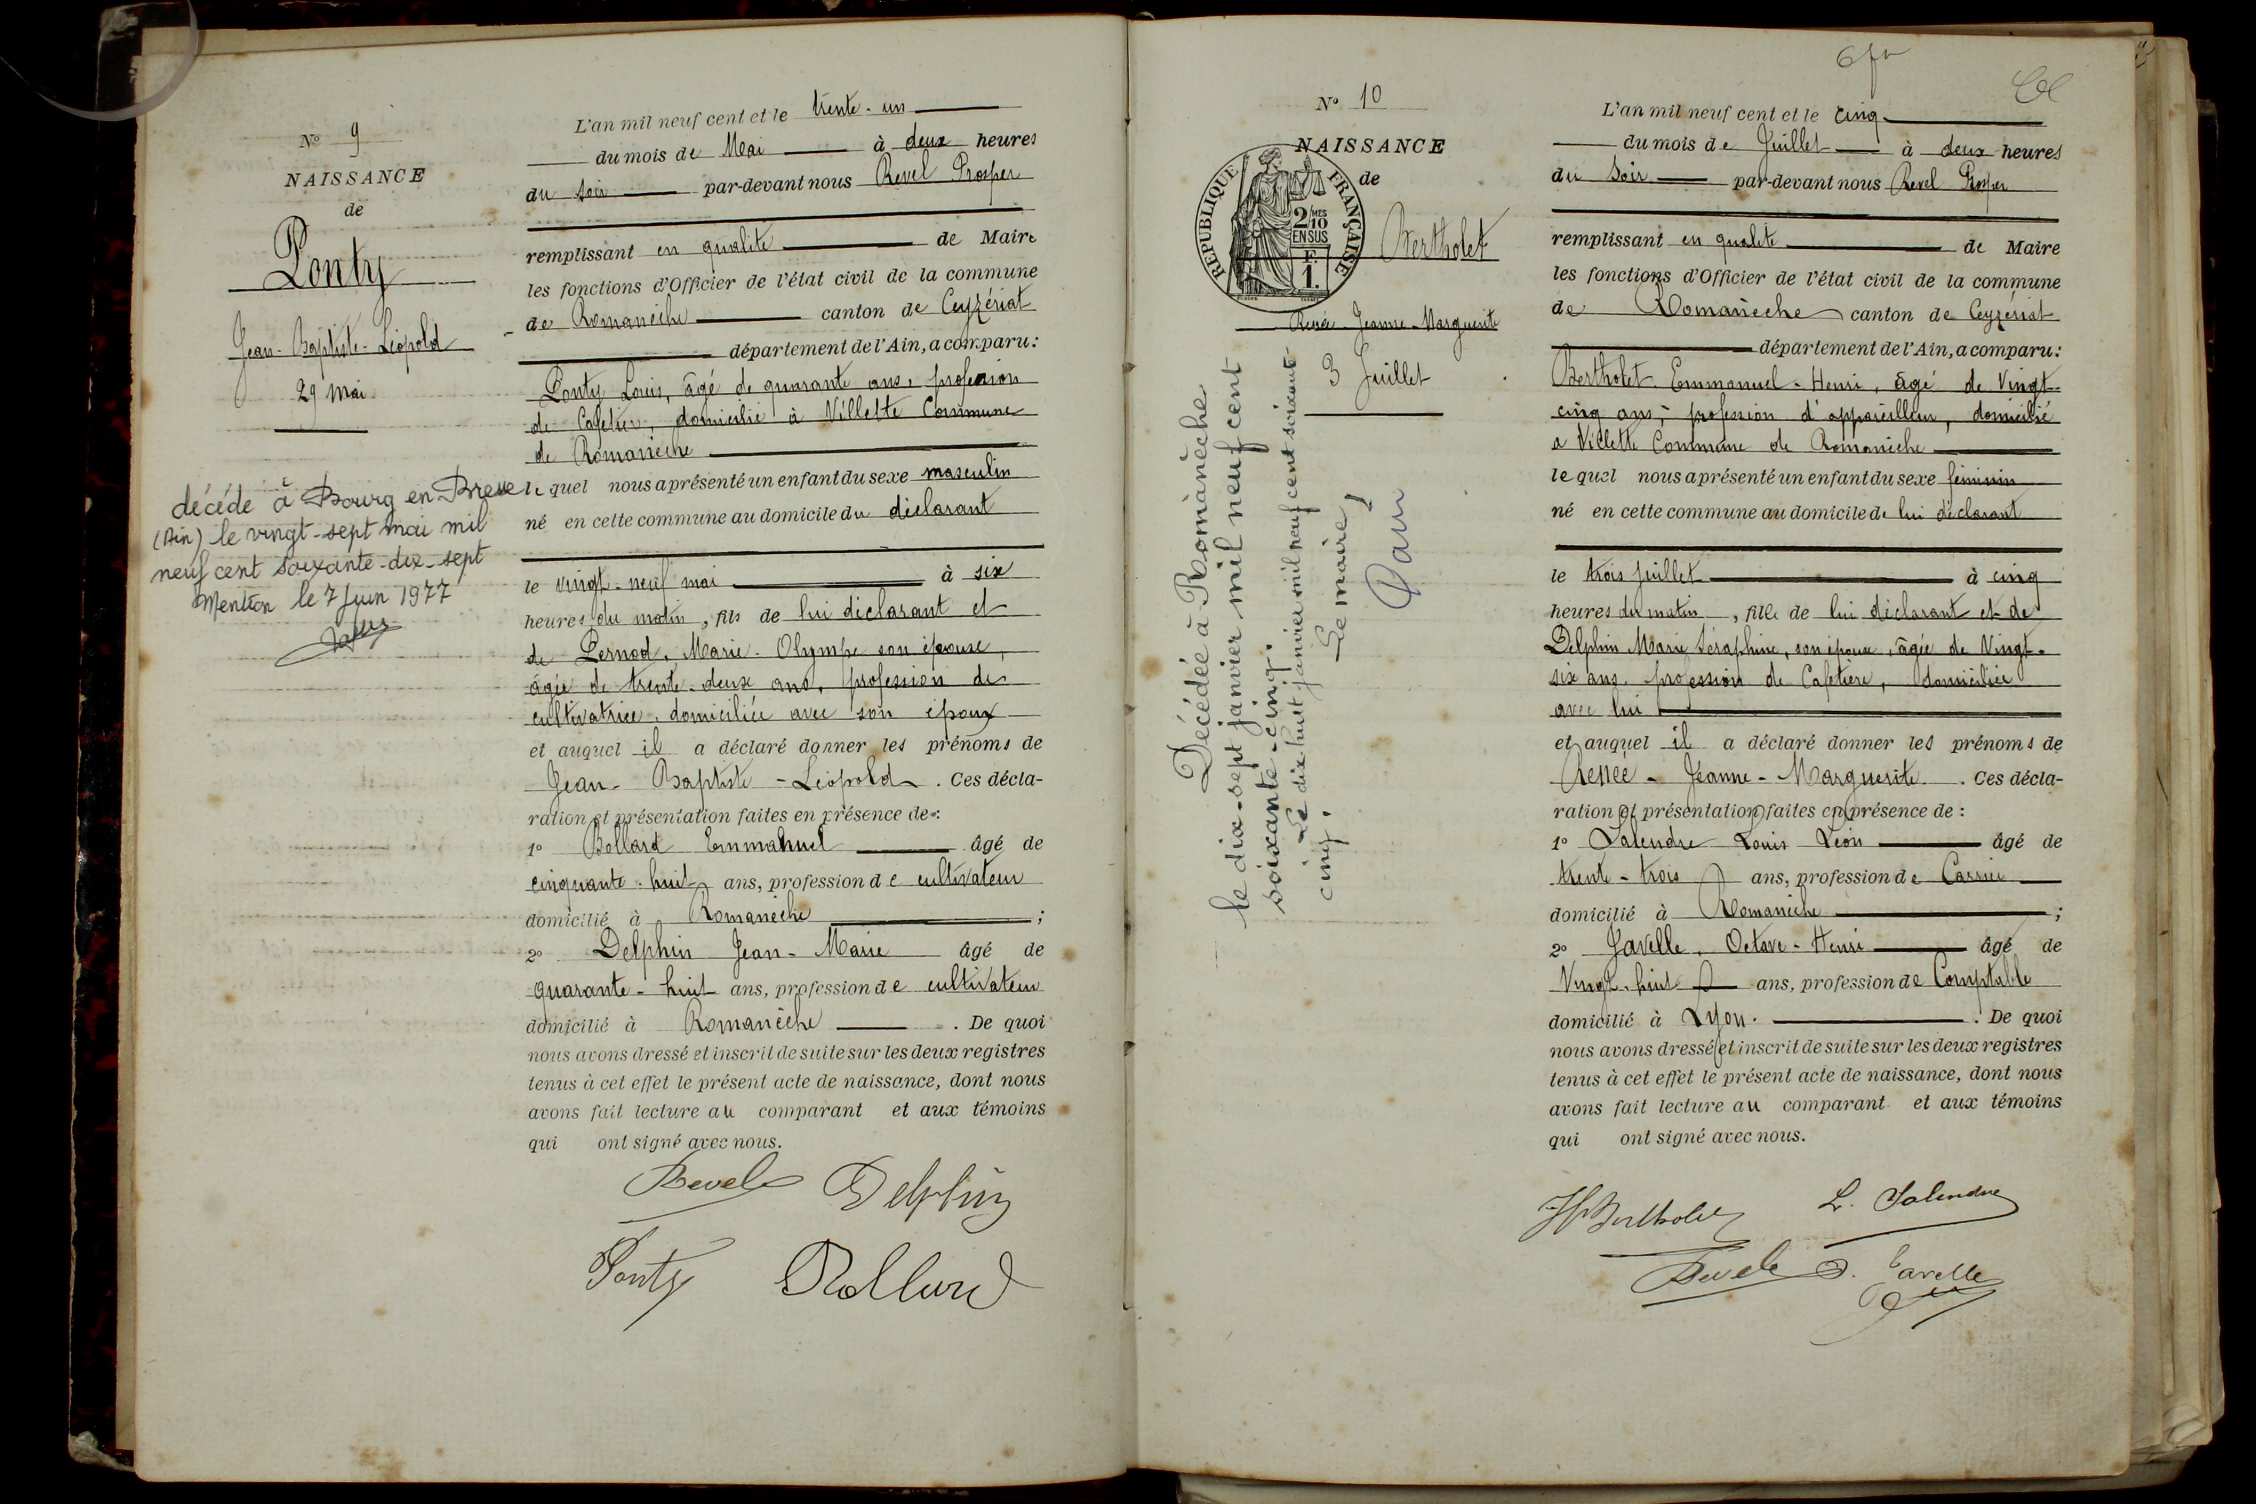 N° 9
NAISSANCE
de
Ponty
Jean-Baptiste-Léopold
29 mai
décédé à Bourg en Bresse
(Ain) le vingt-sept mai mil
neuf cent soixante-dix-sept
Mention le 7 Juin 1977
L'an mil neuf cent et le trente-un
du mois de Mai à deux heures
du soir par-devant nous Revel Prosper
remplissant en qualité de Maire
les fonctions d'Officier de l'état civil de la commune
de Romanèche canton de Ceyzériat
département de l'Ain, a comparu:
Ponty Louis, âgé de quarante ans, profession
de Cafetier, domicilié à Villette Commune
de Romanèche
le quel nous a présenté un enfant du sexe masculin
né en cette commune au domicile du déclarant
le vingt-neuf mai à six
heures du matin, fils de lui déclarant et
de Pernod, Marie-Olympe son épouse,
âgée de trente-deux ans, profession de
cultivatrice, domiciliée avec son époux
et auquel il a déclaré donner les prénoms de
Jean-Baptiste-Léopold. Ces décla-
ration et présentation faites en présence de:
1° Bollard Emmanuel âgé de
cinquante-huit ans, profession de cultivateur
domicilié à Romanèche ;
2° Delphin Jean-Marie âgé de
quarante-huit ans, profession de cultivateur
domicilié à Romanèche. De quoi
nous avons dressé et inscrit de suite sur les deux registres
tenus à cet effet le présent acte de naissance, dont nous
avons fait lecture au comparant et aux témoins
qui ont signé avec nous.
Revel Delphin
Ponty Bollard
N° 10
NAISSANCE
de
RÉPUBLIQUE FRANÇAISE
2/10 MES
EN SUS
F.
1.
Bertholet
Renée-Jeanne-Marguerite
3 Juillet
Décédée à Romanèche
le dix-sept janvier mil neuf cent
soixante-cinq.
Le dix-huit janvier mil neuf cent soixante-
cinq.
Le maire,
L'an mil neuf cent et le cinq
du mois de Juillet à deux heures
du soir par-devant nous Revel Prosper
remplissant en qualité de Maire
les fonctions d'Officier de l'état civil de la commune
de Romanèche canton de Ceyzériat
département de l'Ain, a comparu:
Bertholet Emmanuel-Henri, âgé de Vingt-
cinq ans, profession d'appareilleur, domicilié
a Villette Commune de Romanèche
le quel nous a présenté un enfant du sexe féminin
né en cette commune au domicile de lui déclarant
le trois juillet à cinq
heures du matin, fille de lui déclarant et de
Delphin Marie Séraphine, son épouse, âgée de Vingt-
six ans, profession de Cafetière, domiciliée
avec lui
et auquel il a déclaré donner les prénoms de
Renée-Jeanne-Marguerite. Ces décla-
ration et présentation faites en présence de:
1° Salendre Louis Léon âgé de
trente-trois ans, profession de Carrier
domicilié à Romanèche ;
2° Javelle, Octave-Henri âgé de
Vingt-huit ans, profession de Comptable
domicilié à Lyon. De quoi
nous avons dressé et inscrit de suite sur les deux registres
tenus à cet effet le présent acte de naissance, dont nous
avons fait lecture au comparant et aux témoins
qui ont signé avec nous.
H Bertholet L. Salendre
Revel O. Javelle